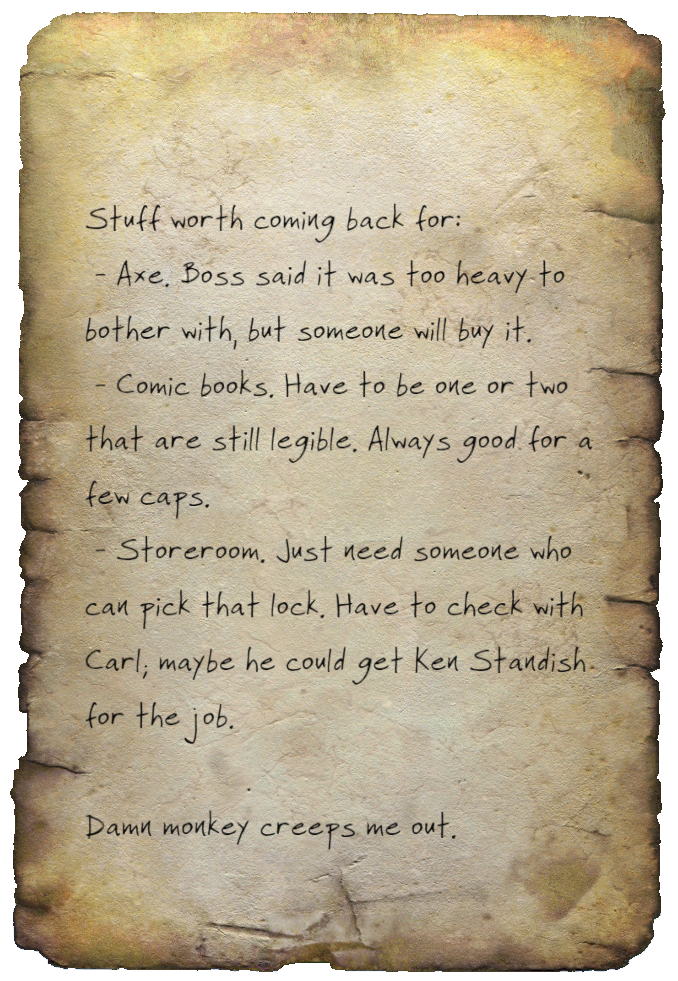 Stuff worth coming back for:
- Axe. Boss said it was too heavy to
bother with, but someone will buy it.
- Comic books. Have to be one or two
that are still legible. Always good for a
few caps.
- Storeroom. Just need someone who
can pick that lock. Have to check with
Carl; maybe he could get Ken Standish
for the job.
Damn monkey creeps me out.